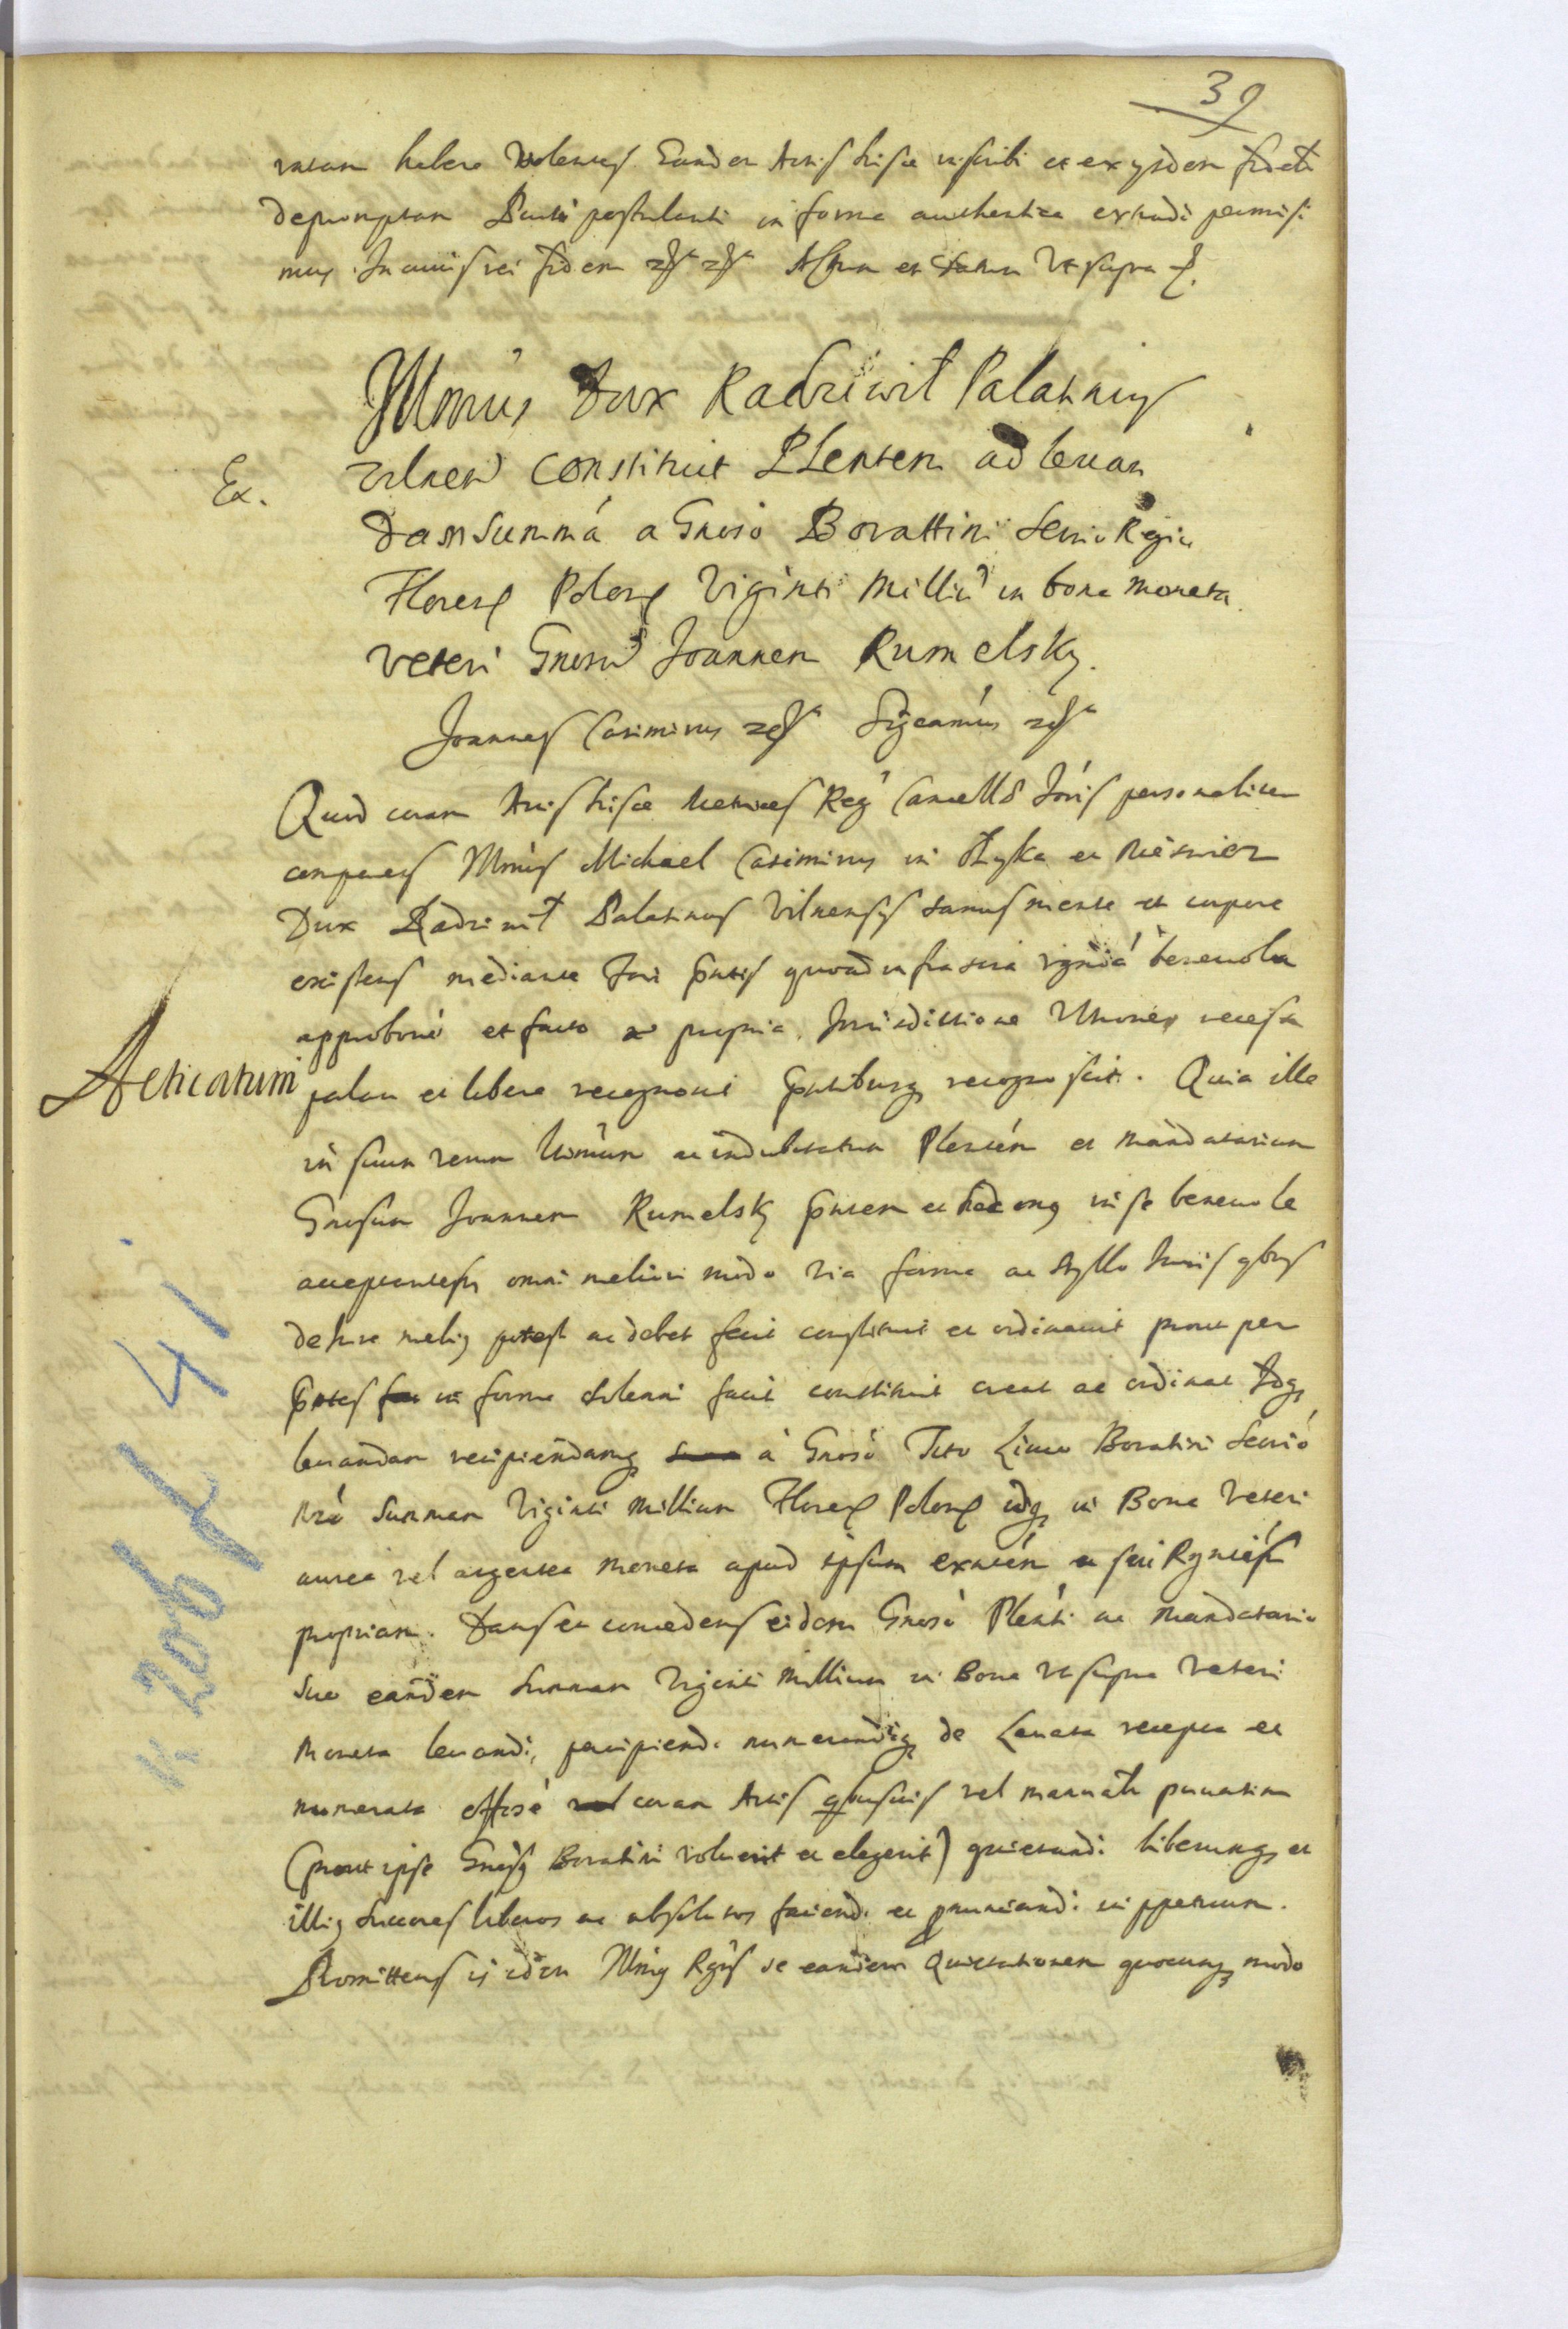 39
ratam habere volentes Eandem Actis hisce inscribi et ex ijsdem fidelr
depromptam Parti postulanti in forma authentica extradi permisi
mus. In cuius rei fidem Actum et datum Vt supra
Illmus Dux Radziwił Palatinus
Ex.
vilnen constituit Plentem ad leuan
dam summá a Gnoso Borattini Seruo Regio
Floren Polon Viginti Milliũ in bona moneta
veteri Gnosũ Joannem Rumelsky.
Joannes Casimirus Significamus
Quod coram Actis hisce Metrices Reg Cancell Joris personaliter
comparens Illmus Michael Casimirus in Ołyka et Nieswiez
Dux Radziwił Palatinus Vilnensis sanus mente et corpore
existens mediante Jori pntis quoad infra scria benevola
approbone et facto a propria Jurisdictione recessu
Acticatum
palam et libere recognouit pntibusq recognoscit. Quia ille
in suum verum ac indubitatum Plentem et Mandatarium
Gnosum Joannem Rumelsky pntem et hoc onq in se benevole
acceptantem omni meliori modo via forma ac stylo Juris qbus
de Jure melius potest ac debet fecit constituit et ordinauit prout per
pntes in forma solenni facit constituit creat ac ordinat Idq
leuandam recipiendamq à Gnoso Tito Liuio Boratini Seruo
nro Summam Viginti Millium Floren Polon idq in Bona Veteri
aurea vel argentea Moneta apud ipsum
propriam. Dans et concedens eidem Gnoso Plenti ac Mandatario
suo eandem Summam Viginti Millium in Bona Vt supra Veteri
Moneta leuandi, percipiendi numerandiq de Leuata recepta et
numerata coram Actis qbusuis vel manualr priuatim
(prout ipse Gnosus Boratini voluerit et elegerit) quietandi liberumq et
illius Succores liberos ac absolutos faciendi et pnunciandi in pperuum.
Promittens idem Illmus Rgns se eandem Quietationem quocunq modo
K 208 f 41